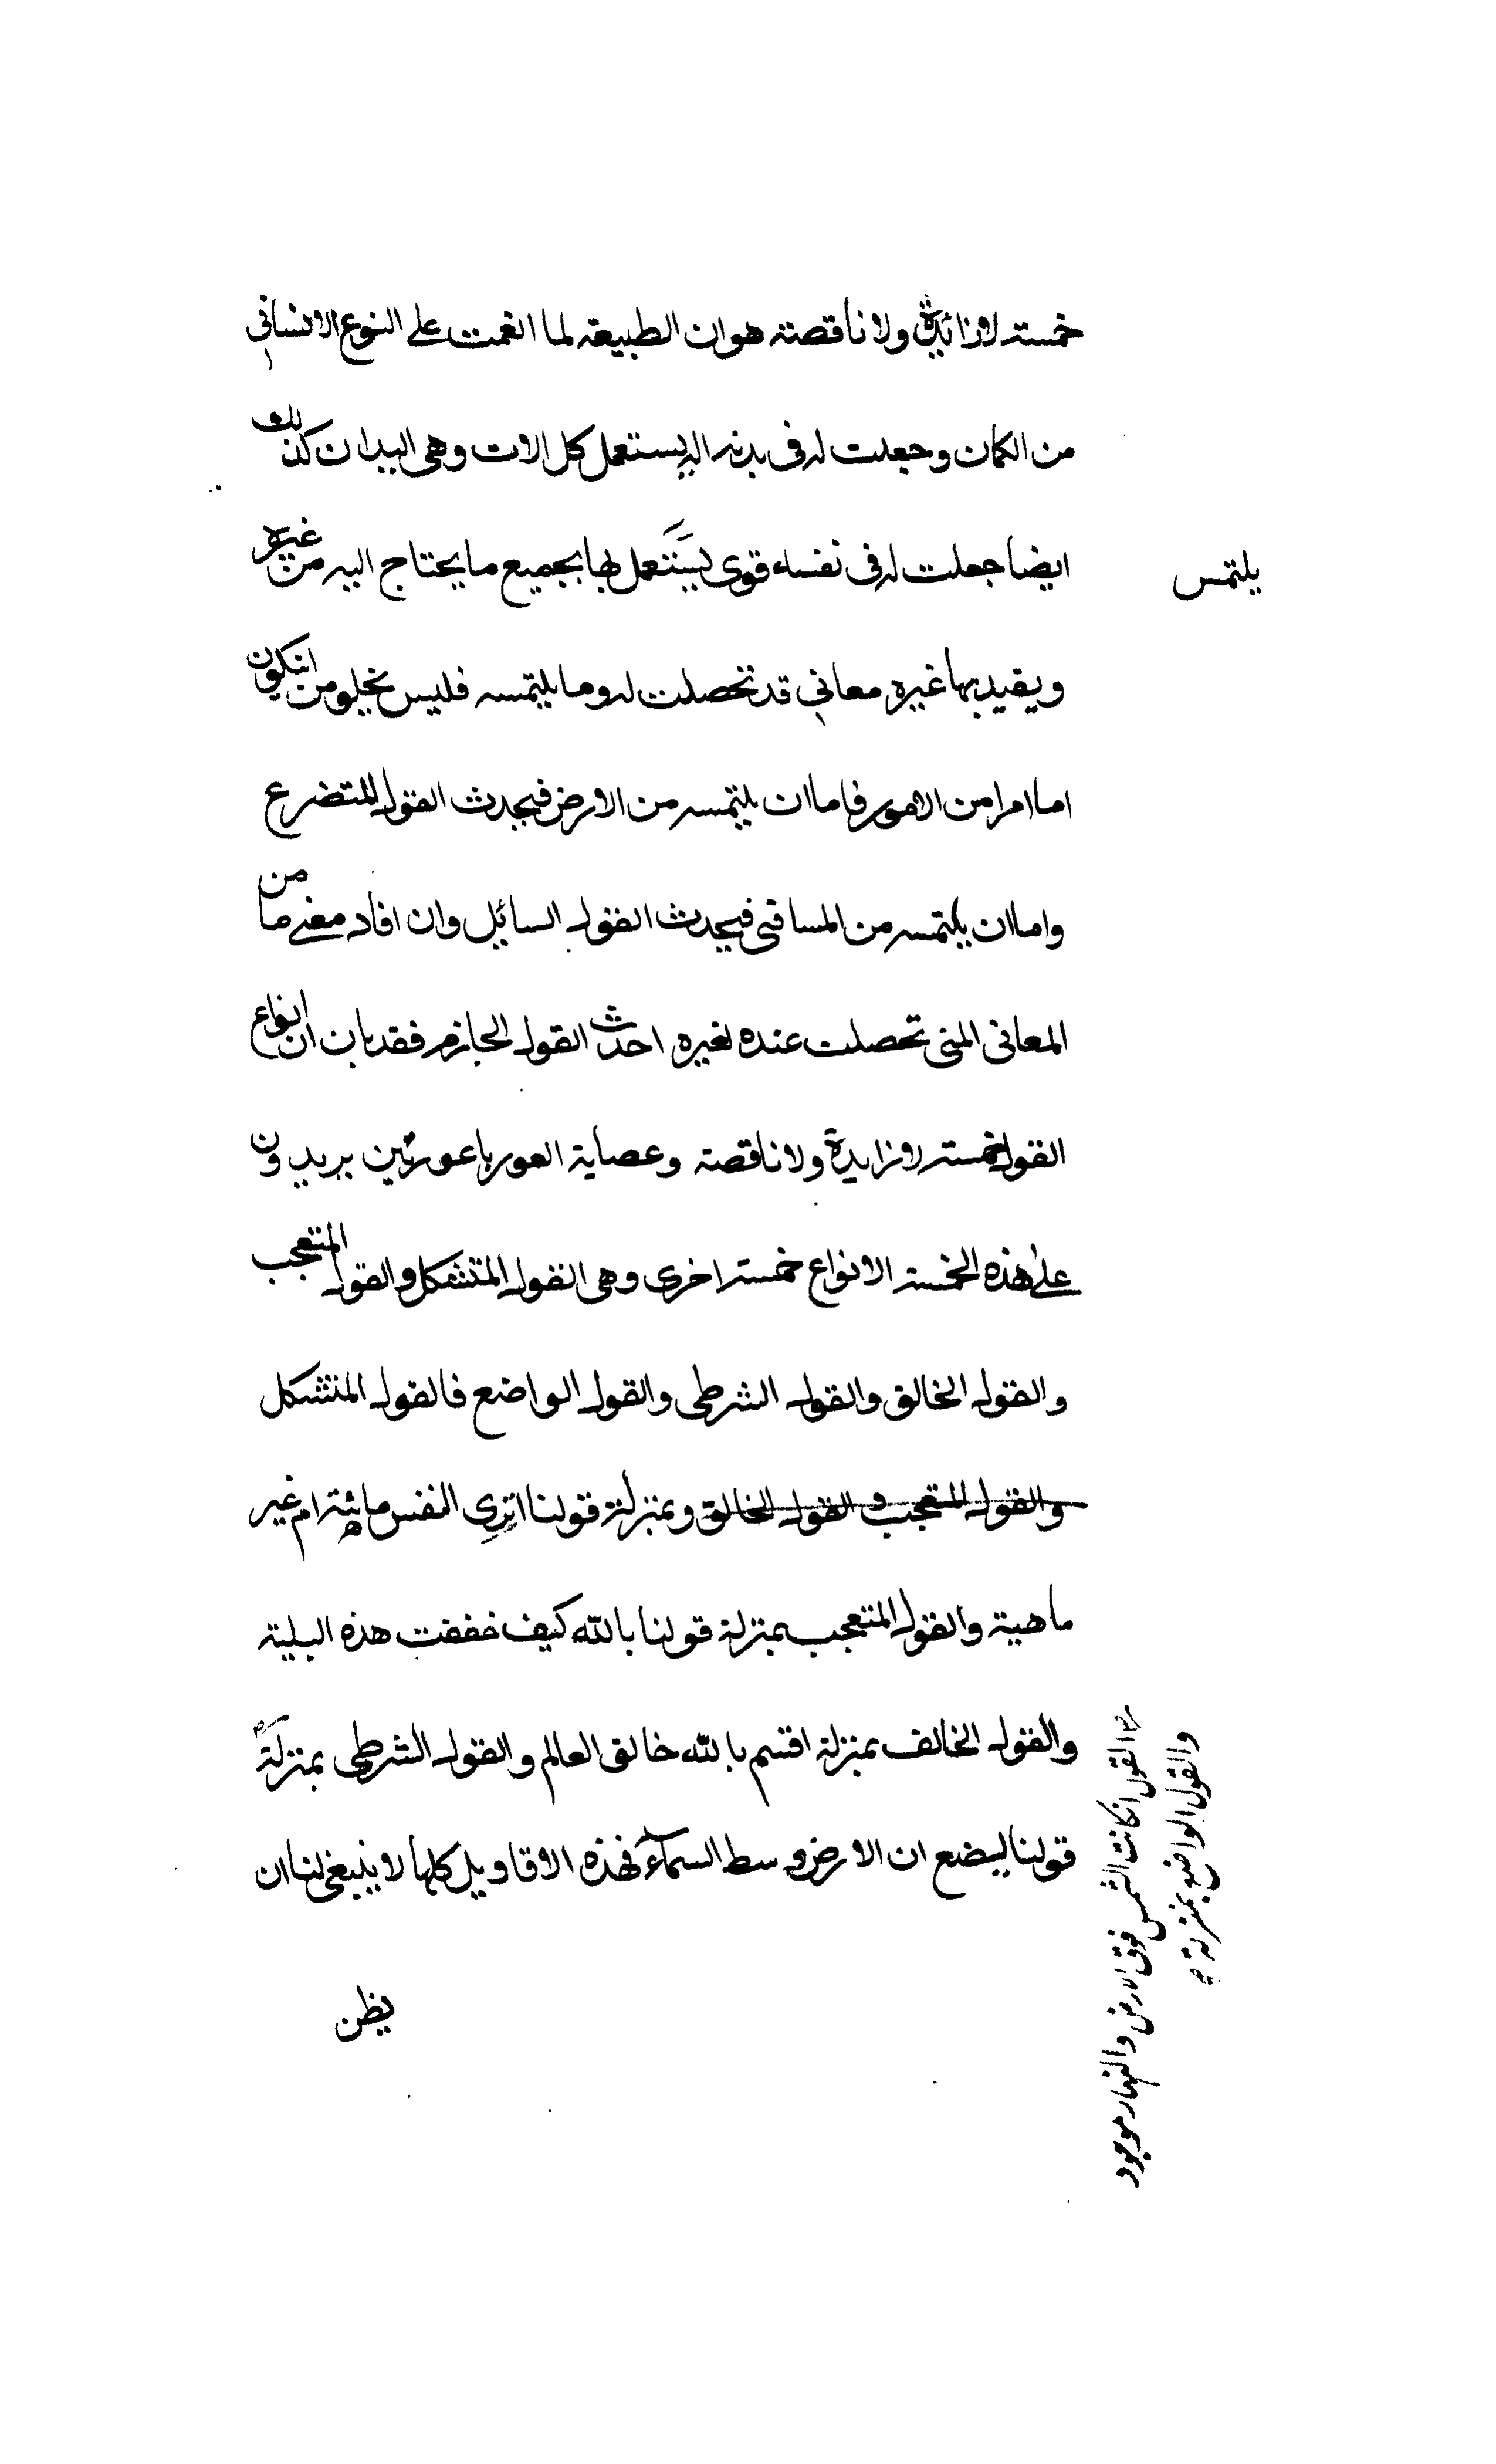 خمسة لا زائدة ولا ناقصة هو ان الطبيعة لما انعمت على النوع الانساني
من الكمان وجعلت له في بدنه اله يستعمل كل الات وهي اليدان كذلك
ايضا جعلت له في نفسه قوى يستعمل بها بجميع ما يحتاج اليه من غيره
يلتمس
ويفيد بها غيره معاني قد تحصلت له وما يلتمسه فليس يخلو من انيكون
اما امرا من الامور فاما ان يلتمسه من الارض فيحدث القول المتضرع
واما ان يلتمسه من المساقى فيحدث القول السائل وان افاد معنى ما من
المعاني التى تحصلت عنده لغيره احدث القول الجازم فقد بان ان انواع
القول خمسة لا زايدة ولا ناقصة وعصاية يريدون
على هذه الخمسة الانواع خمسة اخرى وهى القول المتشكل والقول المتعجب
والقول الخالق والقول الشرطى والقول الواضع فالقول المتشكل
والقول المتعجب والقول الخالق وبمنزلة قولنا اترى النفس مائية ام غير
ماهية والقول المتعجب بمنزلة قولنا بالله كيف خففت هذه البلية
والقول الخالف بمنزلة اقسم بالله خالق العالم والقول الشرطى بمنزلة
قولنا ليضع ان الارض وسط السماء فهذه الاقاويل كلها لا ينبغي لنا ان
القول انكانت الشمس فوق الارض والنهار موجود
والقول الواضع بمنزلة
يظن